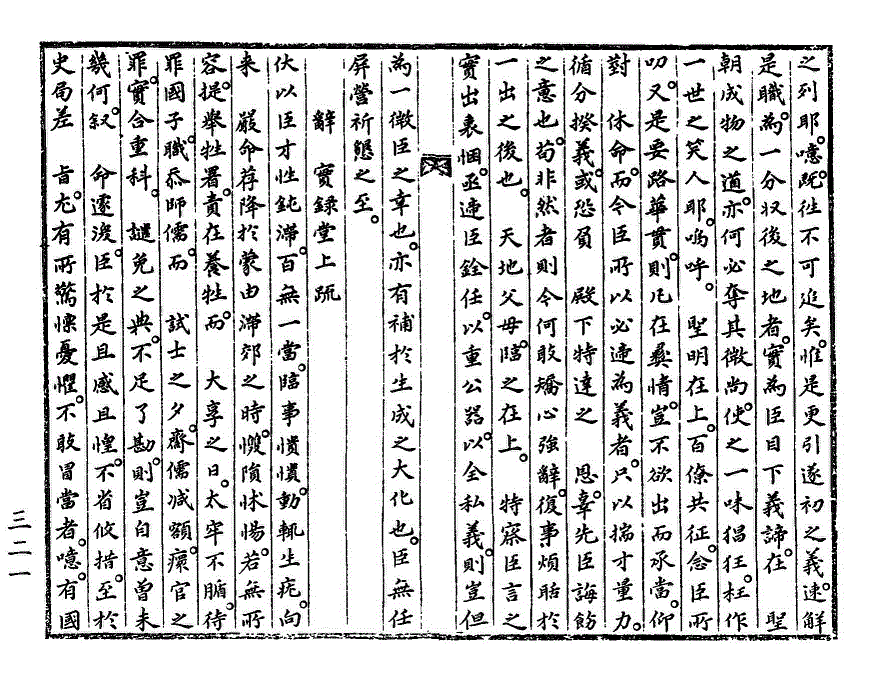 之列耶。噫。旣徃不可追矣。惟是更引遂初之義。速解
是職。爲一分収後之地者。實爲臣目下義諦。在　聖
朝成物之道。亦何必奪其微尚。使之一味猖狂。枉作
一世之笑人耶。嗚呼。　聖明在上。百僚共征。念臣所
叨。又是要路華貫。則凡在彜情。豈不欲出而承當。仰
對　休命。而令臣所以必違爲義者。只以揣才量力。
循分揆義。或恐負　殿下特達之　恩。辜先臣誨飭
之意也。苟非然者。則今何敢矯心強辭。復事煩聒於
一出之後也。　天地父母。臨之在上。　特察臣言之
實出衷悃。亟遞臣銓任。以重公器。以全私義。則豈但
爲一微臣之幸也。亦有補於生成之大化也。臣無任
屛營祈懇之至。
辭　實錄堂上疏
伏以臣才性鈍滯。百無一當。臨事憒憒。動輒生疣。向
來　嚴命荐降於蒙由滯郊之時。慠隕怵惕。若無所
容。提擧牲署。責在養牲。而　大享之日。太牢不腯。待
罪國子。職忝師儒。而　試士之夕。齋儒减額。癏官之
罪。實合重科。　譴免之典。不足了勘。則豈自意曾未
幾何。叙　命遽渙。臣於是且感且惶。不省攸措。至於
史局差　旨。尤有所驚慄憂懼。不敢冒當者。噫。有國
三二一